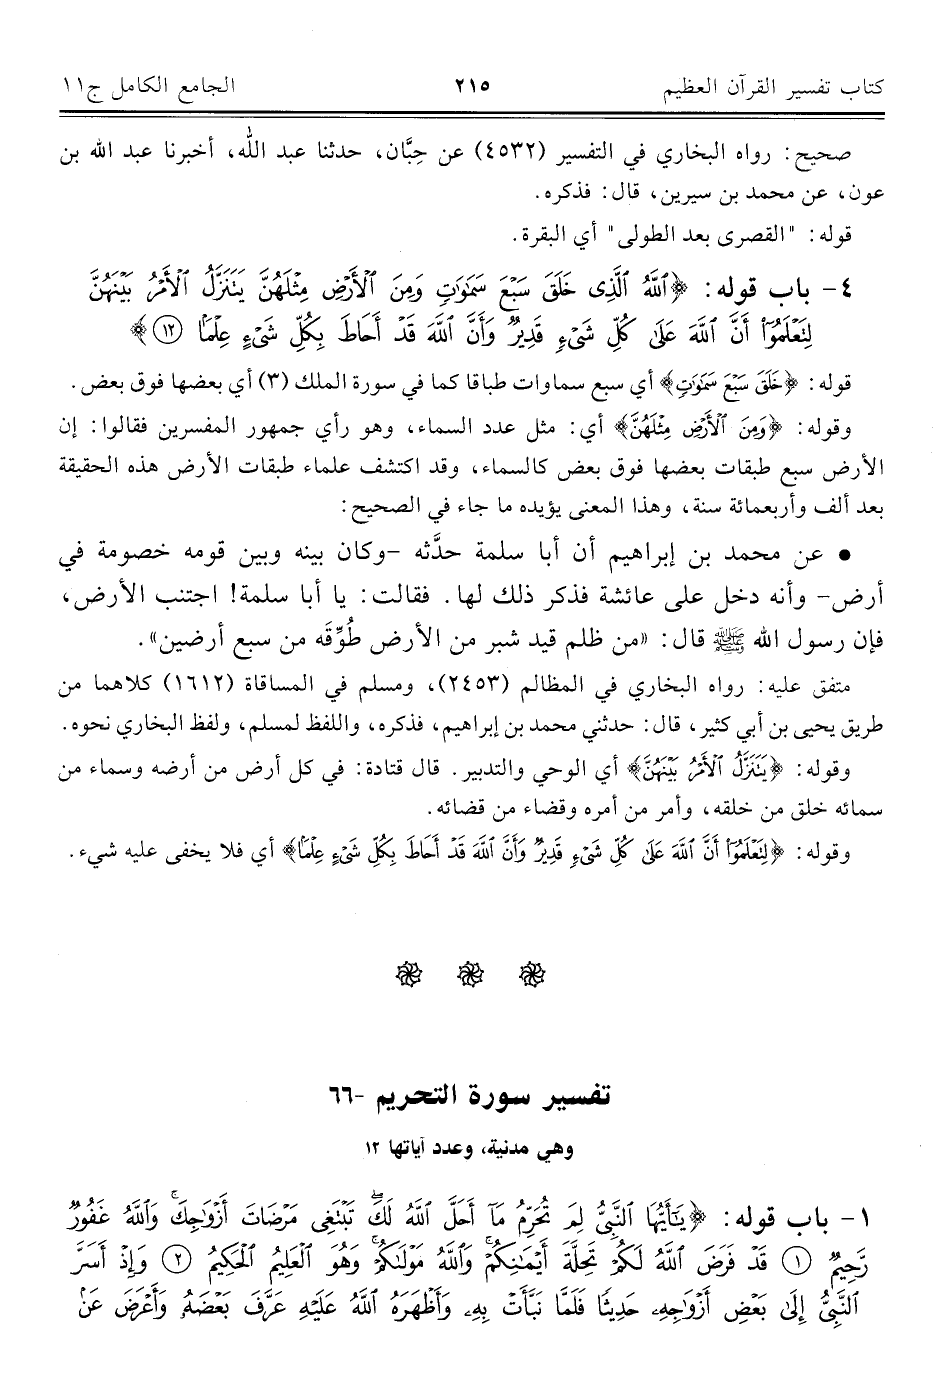 كتاب تفسير القرآن العظيم ٢١٥ الجامع الكامل ج١١
صحيح: رواه البخاري في التفسير (٤٥٣٢) عن حِبَّان، حدثنا عبد الله، أخبرنا عبد الله بن
عون، عن محمد بن سيرين، قال: فذكره.
قوله: "القصرى بعد الطولى" أي البقرة.
٤- باب قوله: ﴿ٱللَّهُ ٱلَّذِى خَلَقَ سَبْعَ سَمَٰوَٰتٍ وَمِنَ ٱلْأَرْضِ مِثْلَهُنَّ يَتَنَزَّلُ ٱلْأَمْرُ بَيْنَهُنَّ
لِتَعْلَمُوٓا۟ أَنَّ ٱللَّهَ عَلَىٰ كُلِّ شَىْءٍ قَدِيرٌ وَأَنَّ ٱللَّهَ قَدْ أَحَاطَ بِكُلِّ شَىْءٍ عِلْمًا ١٢﴾
قوله: ﴿خَلَقَ سَبْعَ سَمَٰوَٰتٍ﴾ أي سبع سماوات طباقا كما في سورة الملك (٣) أي بعضها فوق بعض.
وقوله: ﴿وَمِنَ ٱلْأَرْضِ مِثْلَهُنَّ﴾ أي: مثل عدد السماء، وهو رأي جمهور المفسرين فقالوا: إن
الأرض سبع طبقات بعضها فوق بعض كالسماء، وقد اكتشف علماء طبقات الأرض هذه الحقيقة
بعد ألف وأربعمائة سنة، وهذا المعنى يؤيده ما جاء في الصحيح:
• عن محمد بن إبراهيم أن أبا سلمة حدَّثه -وكان بينه وبين قومه خصومة في
أرض- وأنه دخل على عائشة فذكر ذلك لها. فقالت: يا أبا سلمة! اجتنب الأرض،
فإن رسول الله ﷺ قال: «من ظلم قيد شبر من الأرض طُوِّقَه من سبع أرضين».
متفق عليه: رواه البخاري في المظالم (٢٤٥٣)، ومسلم في المساقاة (١٦١٢) كلاهما من
طريق يحيى بن أبي كثير، قال: حدثني محمد بن إبراهيم، فذكره، واللفظ لمسلم، ولفظ البخاري نحوه.
وقوله: ﴿يَتَنَزَّلُ ٱلْأَمْرُ بَيْنَهُنَّ﴾ أي الوحي والتدبير. قال قتادة: في كل أرض من أرضه وسماء من
سمائه خلق من خلقه، وأمر من أمره وقضاء من قضائه.
وقوله: ﴿لِتَعْلَمُوٓا۟ أَنَّ ٱللَّهَ عَلَىٰ كُلِّ شَىْءٍ قَدِيرٌ وَأَنَّ ٱللَّهَ قَدْ أَحَاطَ بِكُلِّ شَىْءٍ عِلْمًا﴾ أي فلا يخفى عليه شيء.
تفسير سورة التحريم -٦٦
وهي مدنية، وعدد آياتها ١٢
١- باب قوله: ﴿يَٰٓأَيُّهَا ٱلنَّبِىُّ لِمَ تُحَرِّمُ مَآ أَحَلَّ ٱللَّهُ لَكَ ۖ تَبْتَغِى مَرْضَاتَ أَزْوَٰجِكَ ۚ وَٱللَّهُ غَفُورٌ
رَّحِيمٌ ١ قَدْ فَرَضَ ٱللَّهُ لَكُمْ تَحِلَّةَ أَيْمَٰنِكُمْ ۚ وَٱللَّهُ مَوْلَىٰكُمْ ۖ وَهُوَ ٱلْعَلِيمُ ٱلْحَكِيمُ ٢ وَإِذْ أَسَرَّ
ٱلنَّبِىُّ إِلَىٰ بَعْضِ أَزْوَٰجِهِۦ حَدِيثًا فَلَمَّا نَبَّأَتْ بِهِۦ وَأَظْهَرَهُ ٱللَّهُ عَلَيْهِ عَرَّفَ بَعْضَهُۥ وَأَعْرَضَ عَنۢ